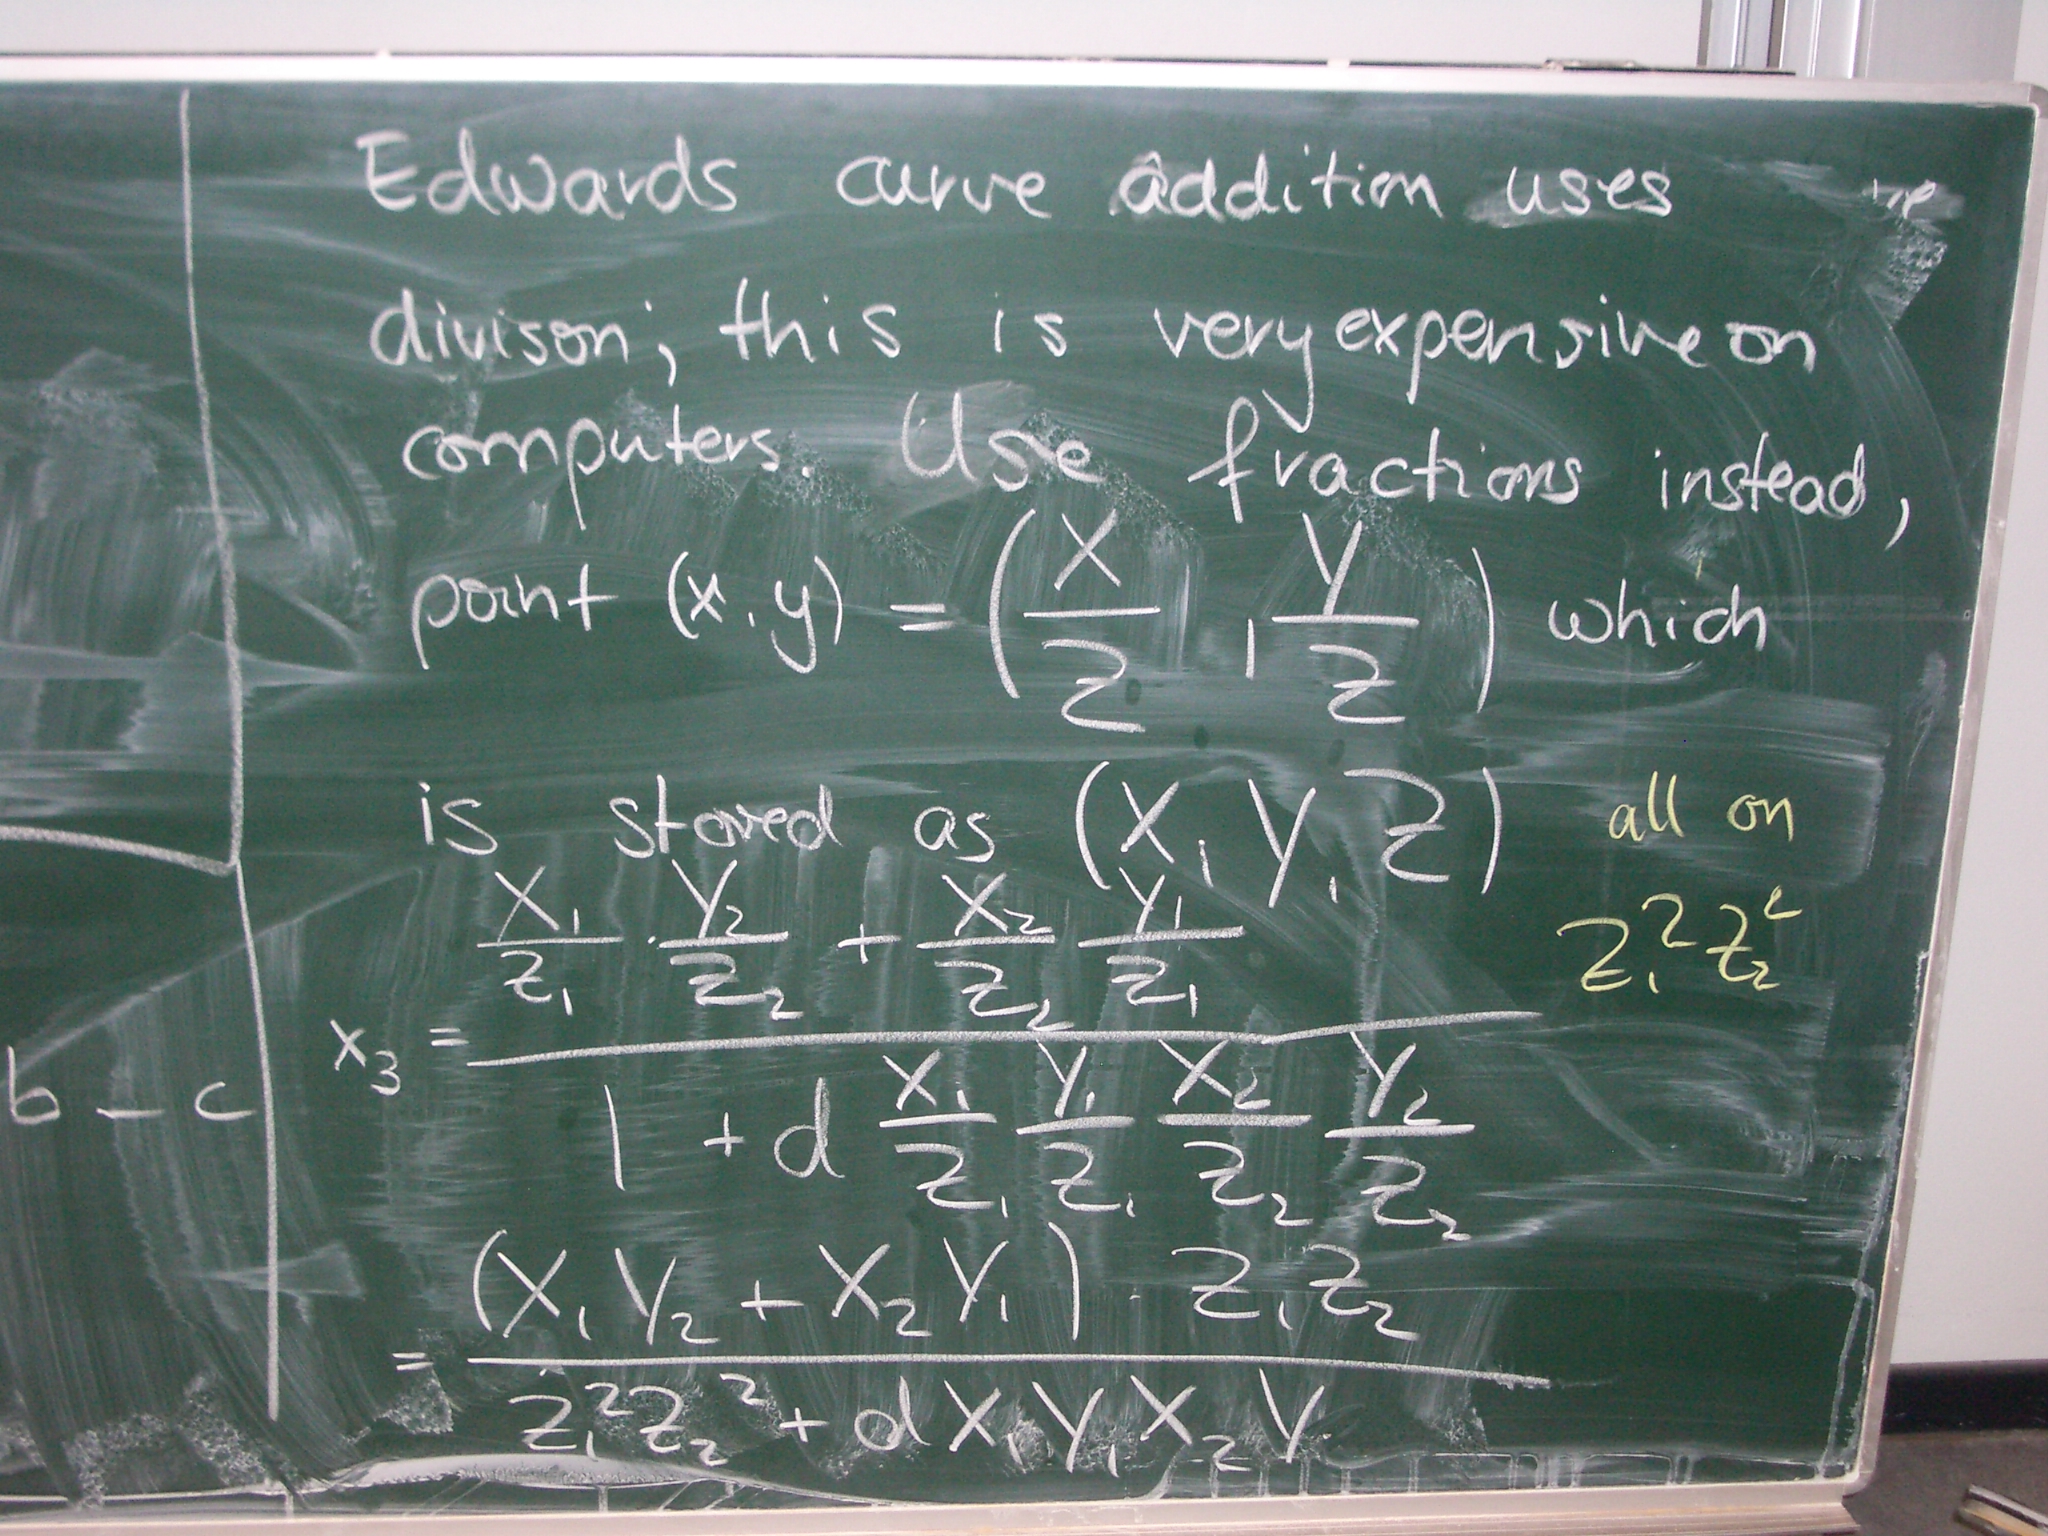 Edwards curve addition uses
divison; this is very expensive on
computers. Use fractions instead,
point (x, y) = (X/Z, Y/Z) which
is stored as (X, Y, Z) all on
Z₁²Z₂²
x₃ = (X₁/Z₁ · Y₂/Z₂ + X₂/Z₂ Y₁/Z₁) / (1 + d X₁/Z₁ Y₁/Z₁ X₂/Z₂ Y₂/Z₂)
b - c
= (X₁Y₂ + X₂Y₁) · Z₁Z₂ / (Z₁²Z₂² + d X₁Y₁X₂Y